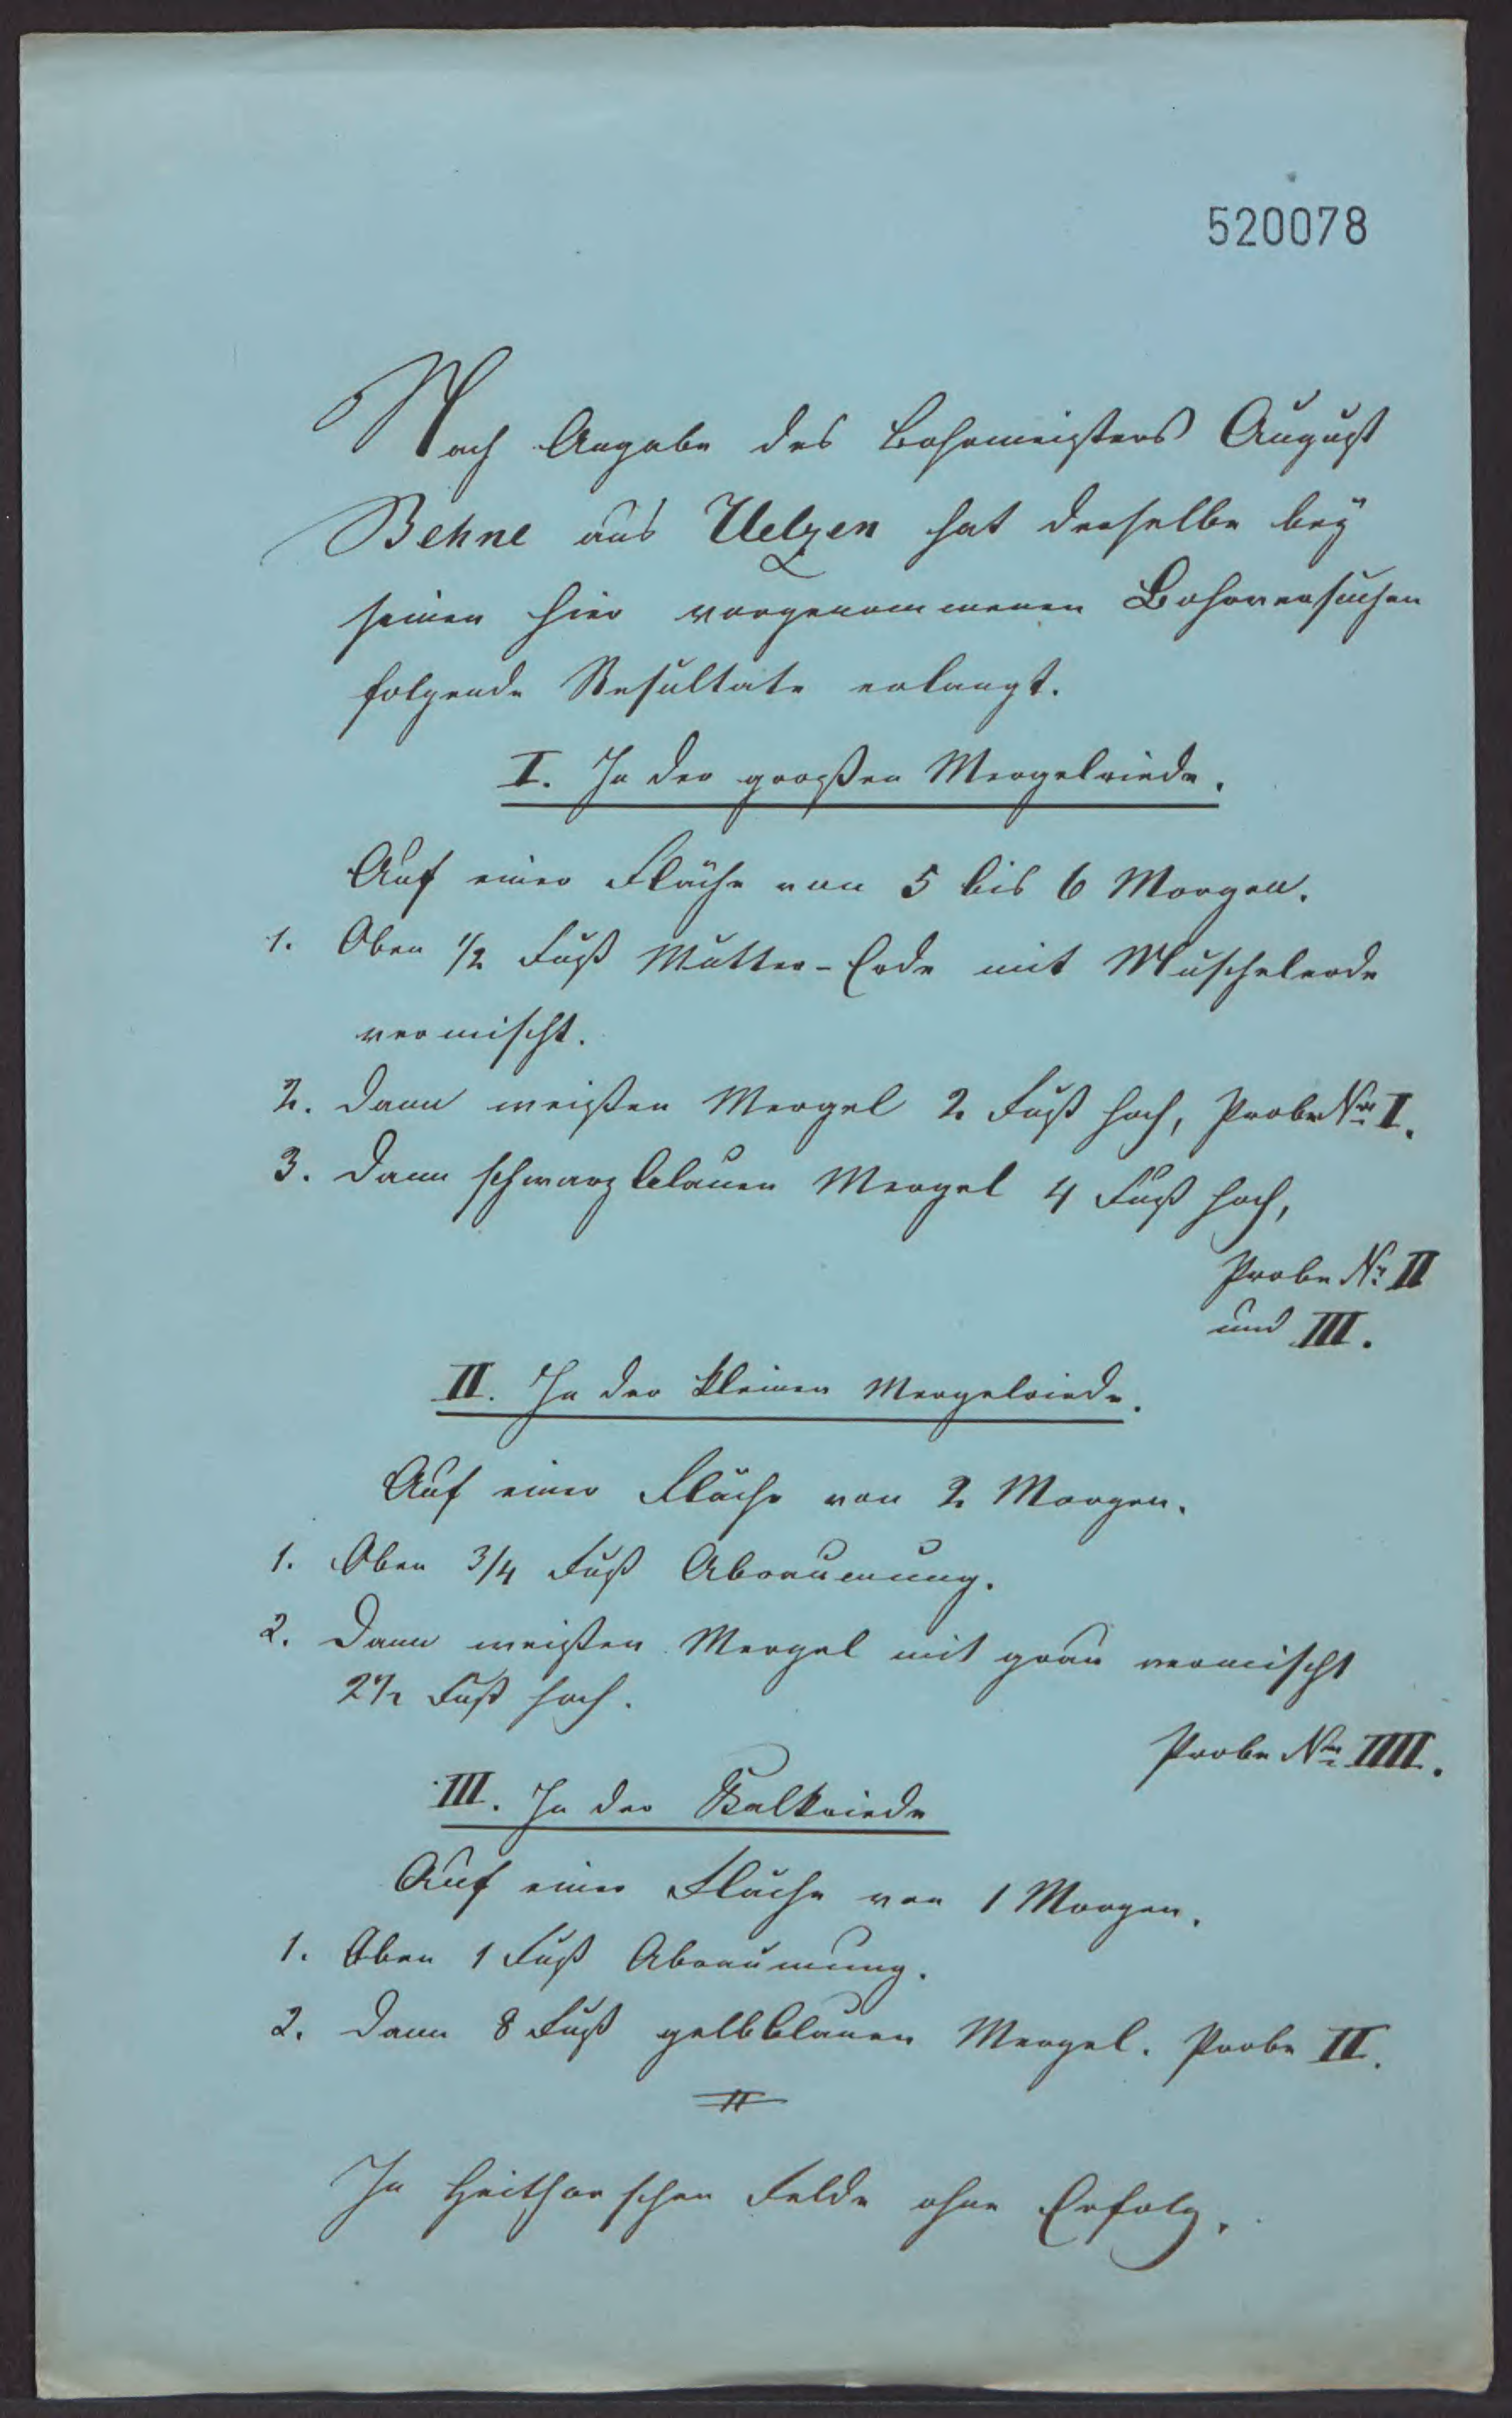 520078
Nach Angabe des Bohrmeisters August
Behne aus Uelzen hat derselbe bey
seinen hier vorgenommenen Bohrversuchen
folgende Resultate erlangt.
I. In der großen Mergelriede.
Auf einer Fläche von 5 bis 6 Morgen.
1. Oben 1/2 Fuß Mutter-Erde mit Muschelerde
vermischt.
2. Dann weißen Mergel 2 Fuß hoch, Probe Nro I.
3. Dann schwarzblauen Mergel 4 Fuß hoch,
Probe Nr. II
und III.
II. In der kleinen Mergelriede.
Auf einer Fläche von 2 Morgen.
1. Oben 3/4 Fuß Abräumung.
2. Dann weißen Mergel mit grau vermischt
2 1/2 Fuß hoch.
Probe Nro IIII.
III. In der Kalkriede
Auf einer Fläche von 1 Morgen.
1. Oben 1 Fuß Abräumung.
2. Dann 8 Fuß gelbblauen Mergel. Probe II.
In Felde ohne Erfolg.